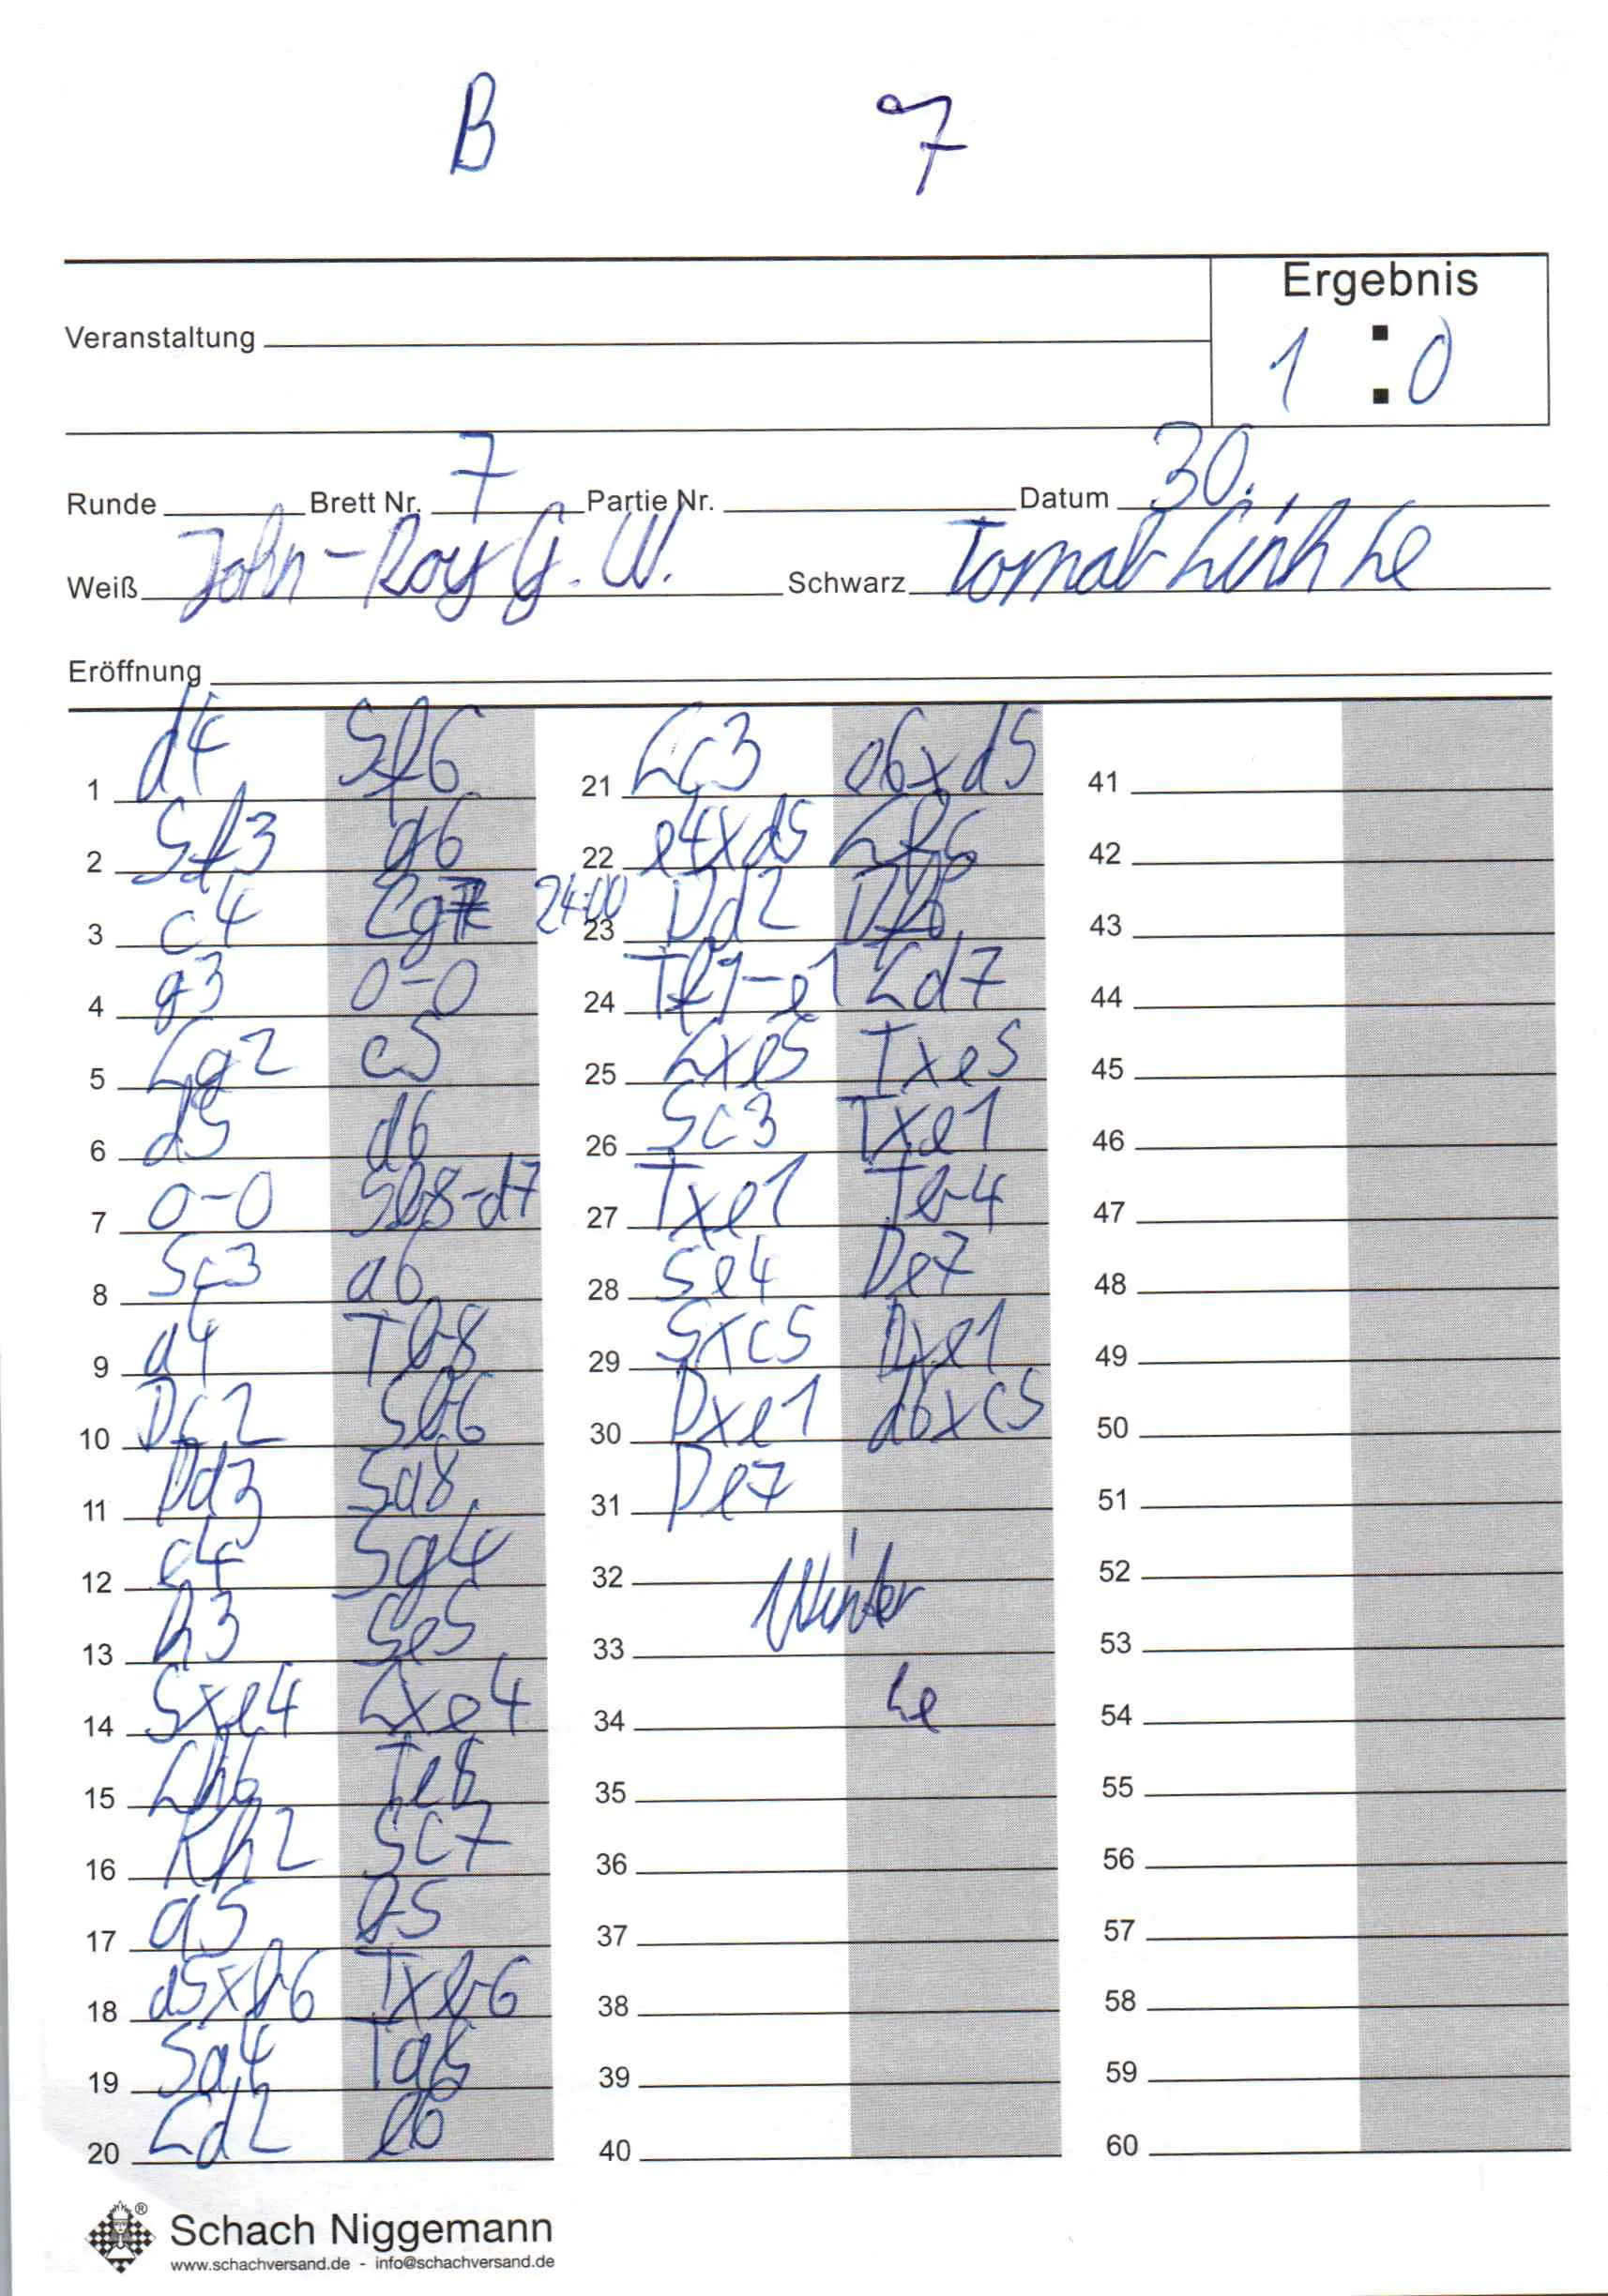 B 7
Ergebnis
Veranstaltung
1 : 0
Runde Brett Nr. 7 Partie Nr. Datum 30.
Weiß John-Roy G. W. Schwarz Linh Le
Eröffnung
1 d4 Sf6
2 Sf3 g6
3 c4 Lg7
4 g3 0-0
5 Lg2 c5
6 d5 d6
7 0-0 Sb8-d7
8 Sc3 a6
9 a4 Tb8
10 Dc2 Sb6
11 Dd3 Sa8
12 e4 Sg4
13 h3 Se5
14 Sxe4 Lxe4
15 Lh6 Te8
16 Kh2 Sc7
17 a5 b5
18 a5xb6 Txb6
19 Sa4 Ta6
20 Ld2 e6
21 Lc3 e6xd5
22 e4xd5 Lf5
24:00
23 Dd2 Df6
24 Tf1-e1 Ld7
25 Lxe5 Txe5
26 Sc3 Txe1
27 Txe1 Tb4
28 Se4 De7
29 Sxc5 Dxe1
30 Dxe1 d6xc5
31 De7
32
Winter
33
34 Le
35
36
37
38
39
40
41
42
43
44
45
46
47
48
49
50
51
52
53
54
55
56
57
58
59
60
®
Schach Niggemann
www.schachversand.de - info@schachversand.de